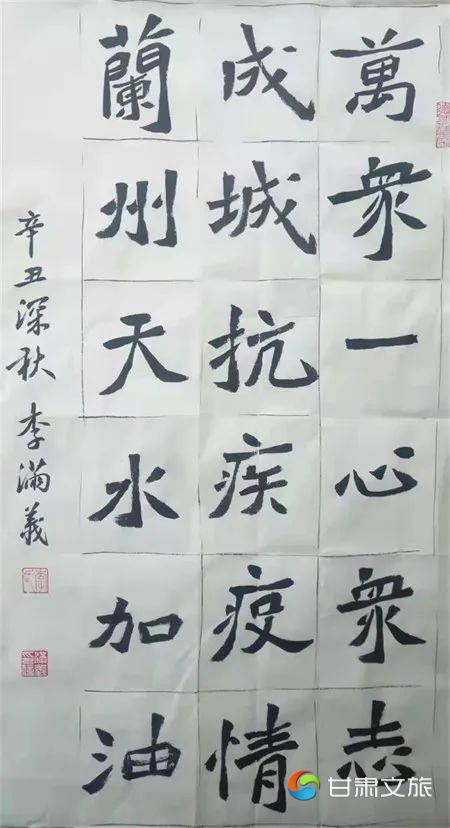 萬衆一心衆志
成城抗疾疫情
蘭州天水加油
辛丑深秋 李滿義
甘肃文旅